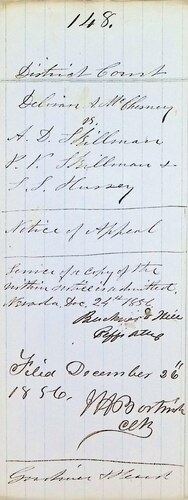 148.
District Court
Delivan & McChesney
vs.
A. D. Skillman
V. V. Skillman &
S. S. Hussey
Notice of Appeal
Service of a copy of the
within notice is admitted,
Nevada, Dec. 24th 1856
Buckner & Hill
Filed December 26
1856.
Clk
Gardiner &